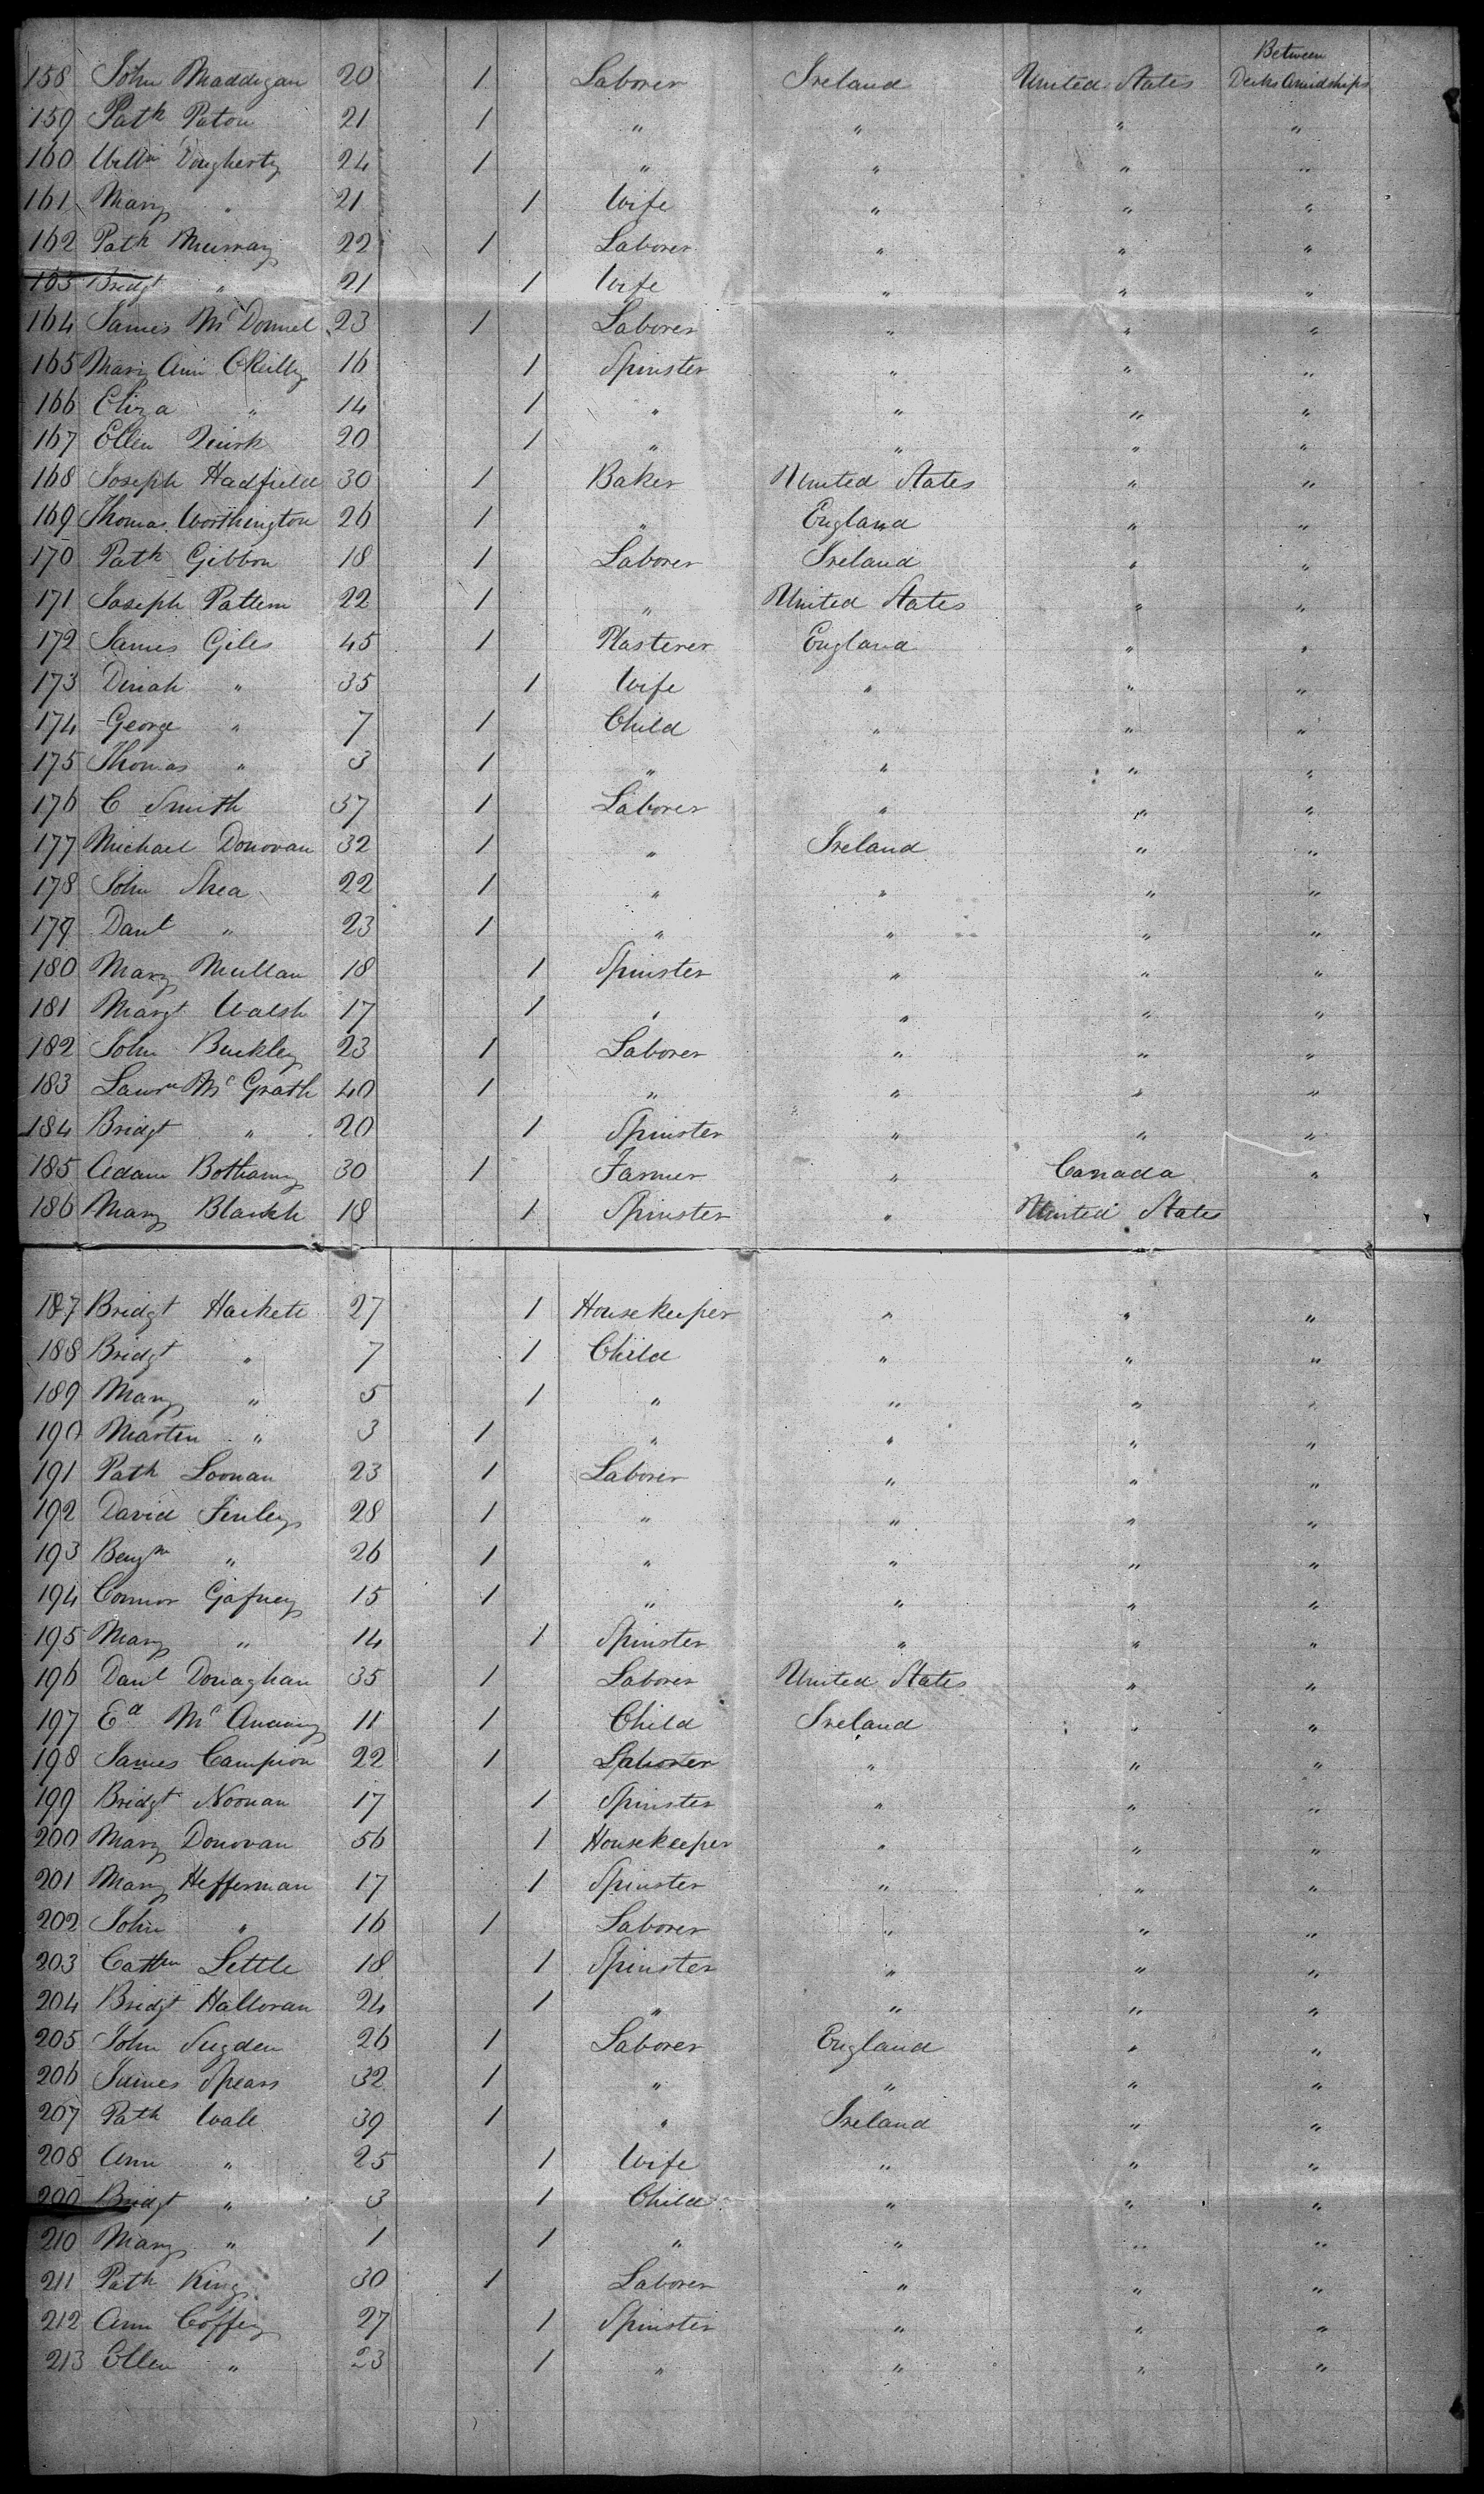 158 John Maddigan 20 1 Laborer Ireland United States Between Decks Amidships
159 Patk Paton 21 1 " " " "
160 Willm Dougherty 24 1 " " " "
161 Mary " 21 1 Wife " " "
162 Patk Murray 22 1 Laborer " " "
163 Bridgt " 21 1 Wife " " "
164 James McDonnel 23 1 Laborer " " "
165 Mary Ann OReilly 16 1 Spinster " " "
166 Eliza " 14 1 " " " "
167 Ellen Quirk 20 1 " " " "
168 Joseph Hadfield 30 1 Baker United States " "
169 Thomas Worthington 26 1 " England " "
170 Patk Gibbon 18 1 Laborer Ireland " "
171 Joseph Pattern 22 1 " United States " "
172 James Giles 45 1 Plasterer England " "
173 Dinah " 35 1 Wife " " "
174 George " 7 1 Child " " "
175 Thomas " 3 1 " " " "
176 C Smith 37 1 Laborer " " "
177 Michael Donovan 32 1 " Ireland " "
178 John Shea 22 1 " " " "
179 Danl " 23 1 " " " "
180 Mary Mullan 18 1 Spinster " " "
181 Margt Walsh 17 1 " " " "
182 John Buckley 23 1 Laborer " " "
183 Lawre McGrath 40 1 " " " "
184 Bridgt " 20 1 Spinster " " "
185 Adam Bothamy 30 1 Farmer " Canada "
186 Mary 18 1 Spinster " United States
187 Bridgt Hackett 27 1 Housekeeper " " "
188 Bridgt " 7 1 Child " " "
189 Mary " 5 1 " " " "
190 Martin " 3 1 " " " "
191 Patk Loonan 23 1 Laborer " " "
192 David Finley 28 1 " " " "
193 Benjn " 26 1 " " " "
194 Connor Gafney 15 1 " " " "
195 Mary " 14 1 Spinster " " "
196 Danl Donaghan 35 1 Laborer United States " "
197 Ed Mc 11 1 Child Ireland " "
198 James Campion 22 1 Laborer " " "
199 Bridgt Noonan 17 1 Spinster " " "
200 Mary Donovan 56 1 Housekeeper " " "
201 Mary Hefferman 17 1 Spinster " " "
202 John " 16 1 Laborer " " "
203 Cathn Settle 18 1 Spinster " " "
204 Bridgt Halloran 24 1 " " " "
205 John Sugden 26 1 Laborer England " "
206 James Spears 32 1 " " " "
207 Patk Wall 39 1 " Ireland " "
208 Ann " 25 1 Wife " " "
209 Bridgt " 3 1 Child " " "
210 Mary " 1 1 " " " "
211 Patk King 30 1 Laborer " " "
212 Ann Coffey 27 1 Spinster " " "
213 Ellen " 23 1 " " " "